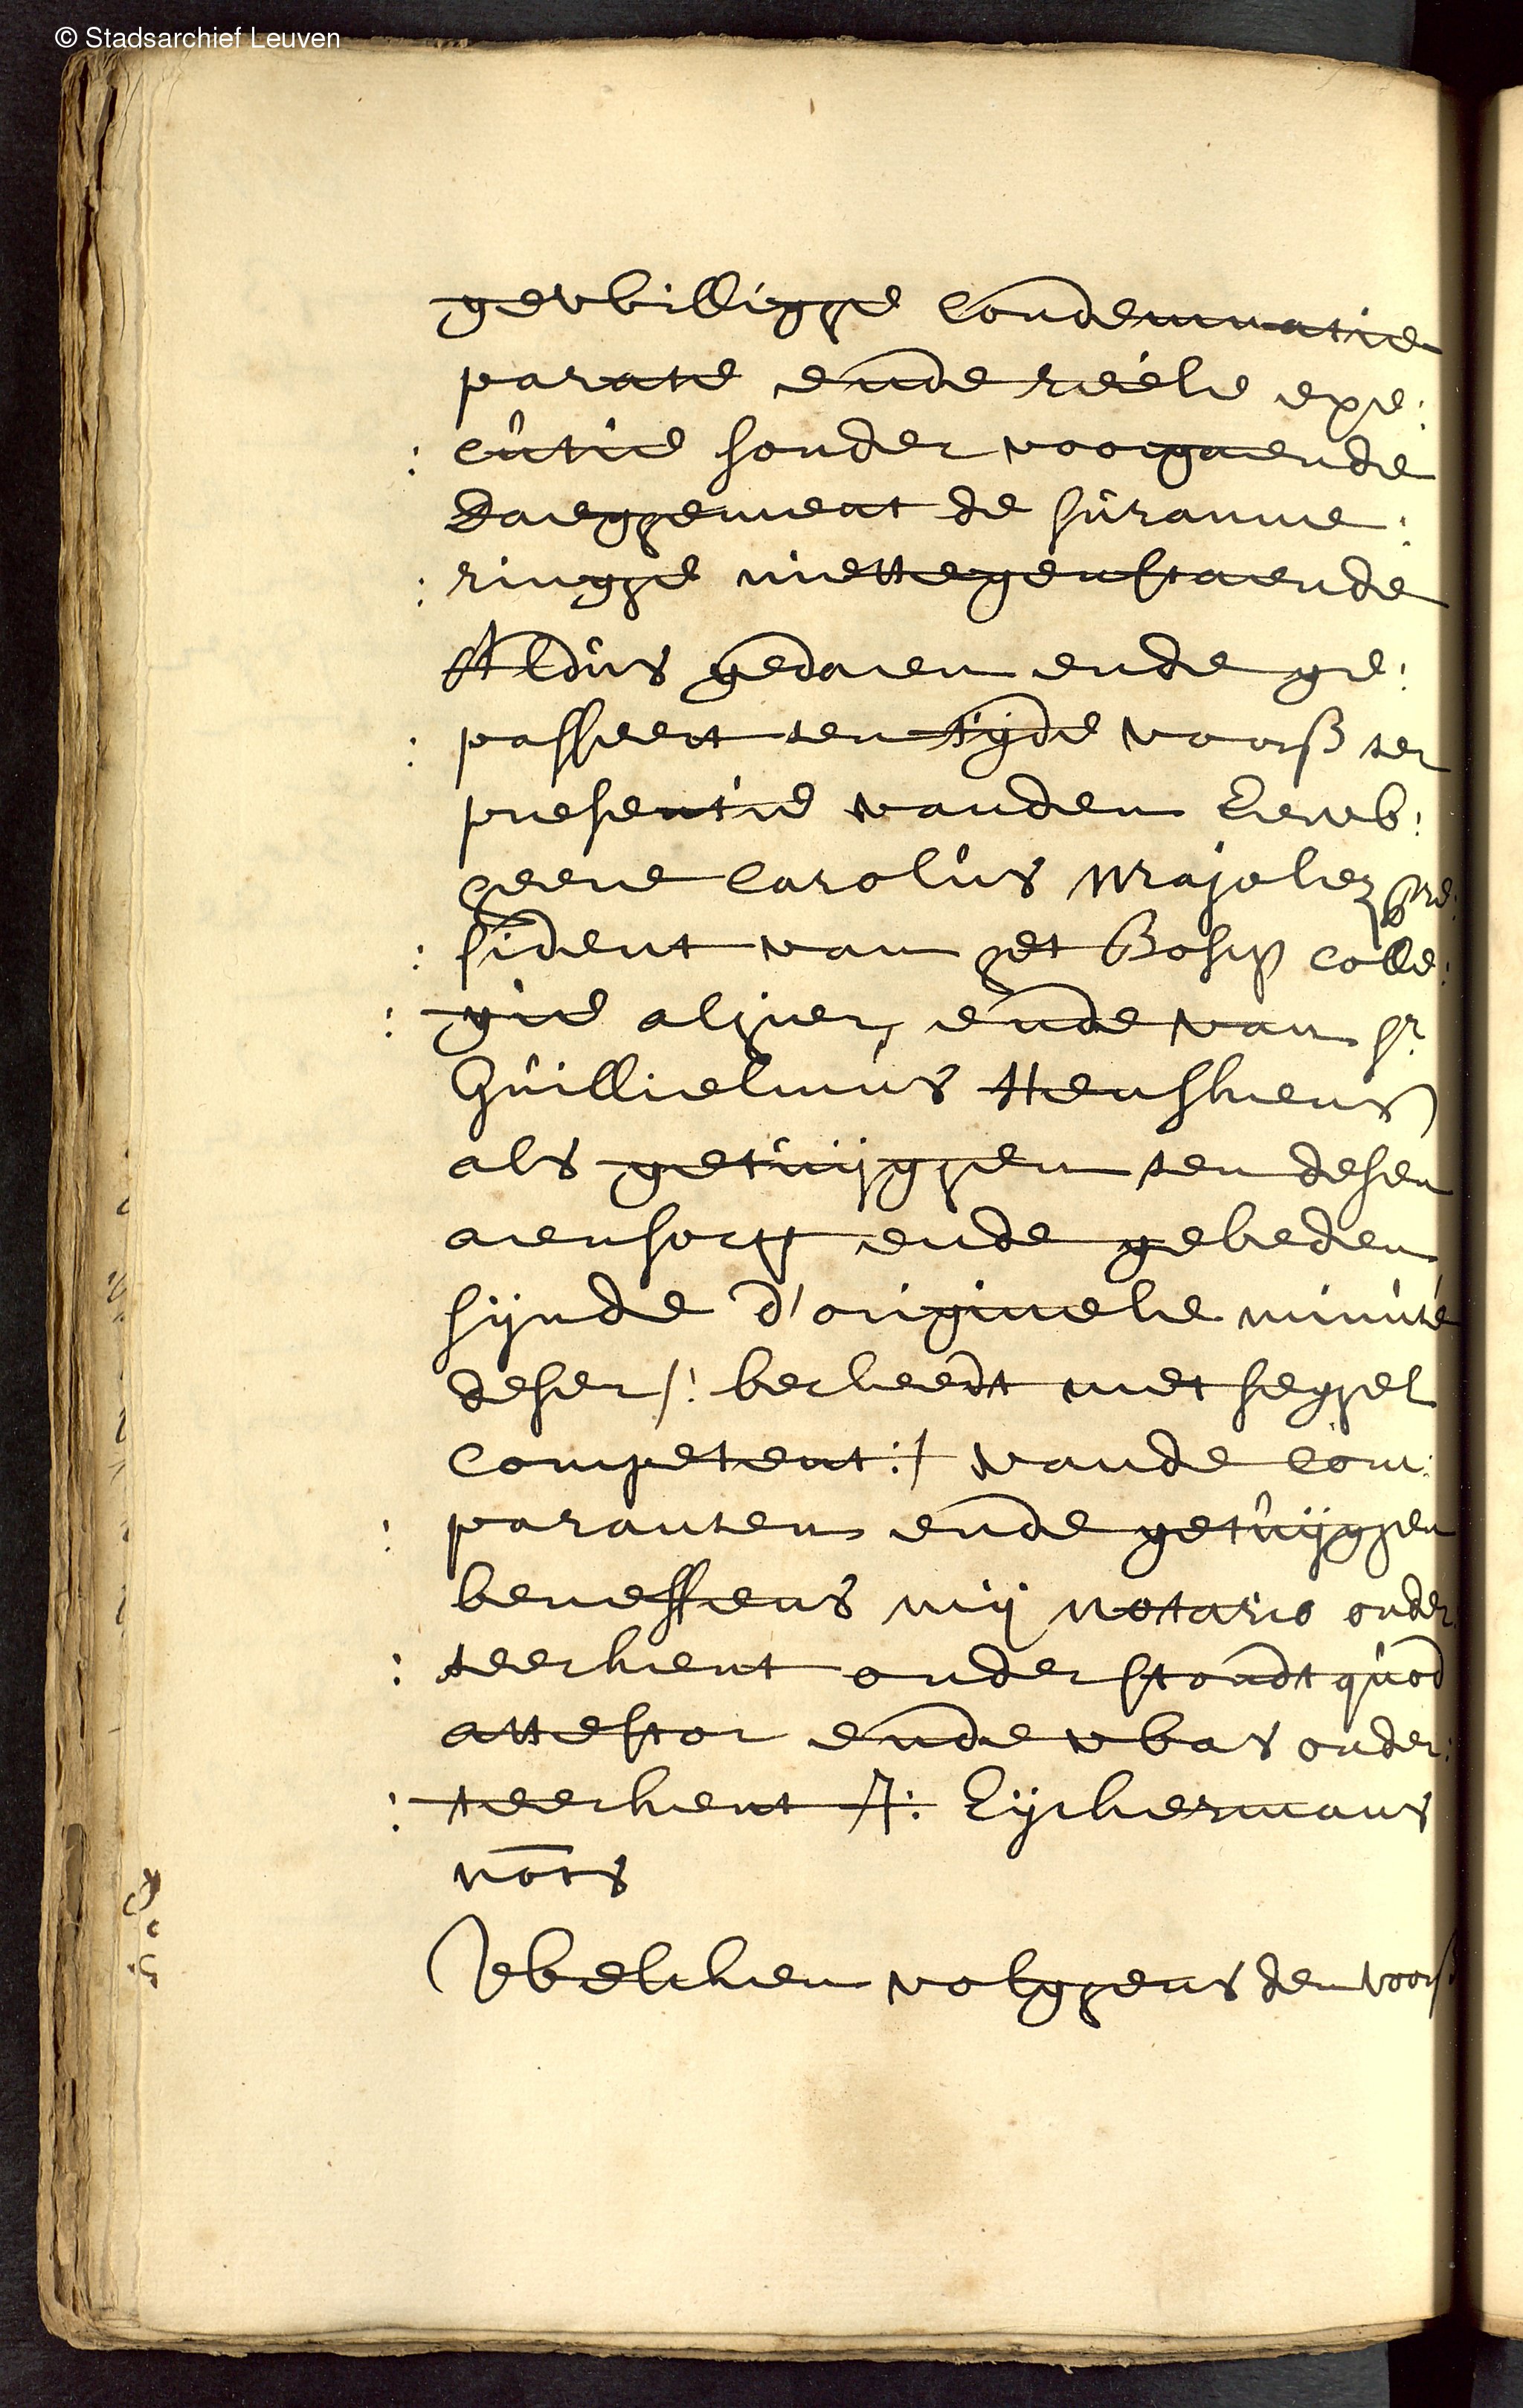 © Stadsarchief Leuven
gewillighe condemnatie
parate ende reële exe:
: cutie sonder voorgaende
daeghement de suranne:
: ringhe niettegenstaende
Aldus gedaen ende ge:
: passeert ten tijde voors ter
presentie vanden Eerw:
heere Carolus Majolez pre:
: sident van het Bosch colle:
: gie alhier, ende van sr
Guillielmus Henskens
als getuijghen ten desen
aensocht ende gebeden
sijnde d'originele minute
deser /: becleedt met seghel
competent :/ vande com:
: paranten ende getuijghen
beneffens mij notario onder
: teeckent onderstondt quod
attestor ende was onder:
: teeckent J: Eijckermans
nots
Welcken volghens den voors